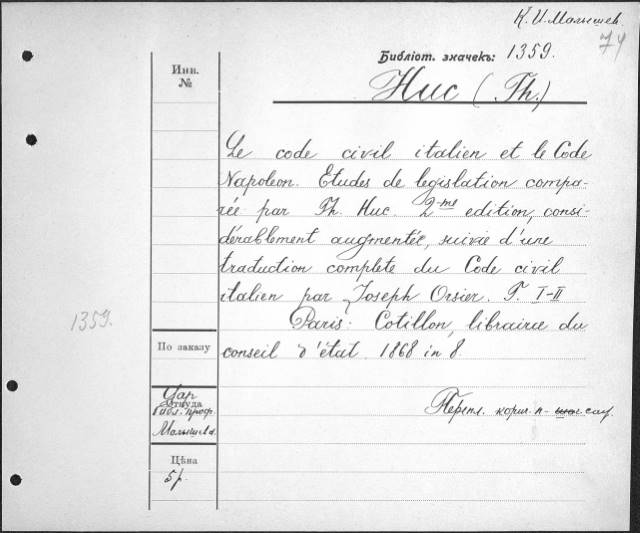 К. И. Малышев
74
Библіот. значекъ: 1359.
Инв.
№
Huc (Th.)
Le code civil italien et le Code
Napoleon. Etudes de legislation compa-
rée par Th. Huc. 2-me edition, consi-
dérablement augmentée, suivie d'une
traduction complete du Code civil
italien par Joseph Orsier. T. I-II
1359.
Paris: Cotillon, libraire du
По заказу
conseil d'état 1868 in 8
Откуда
библ. проф.
Малышева
Перепл. кориш. п.
Цѣна
5 р.